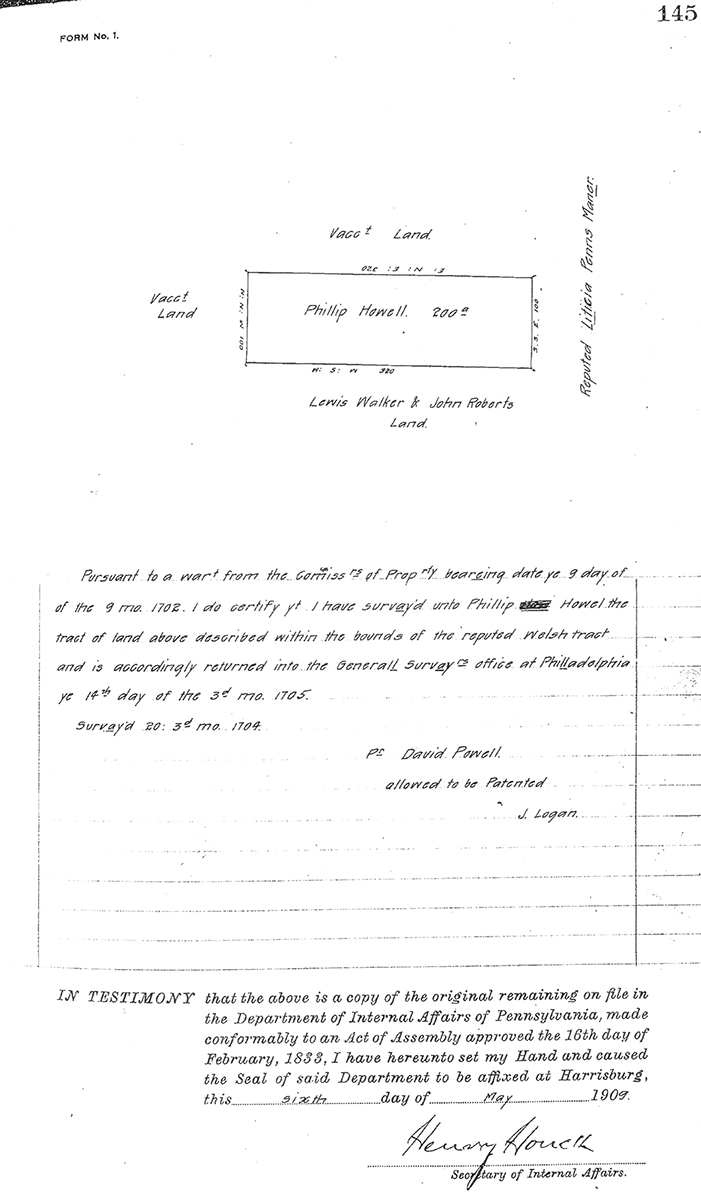 145
FORM No. 1.
Vacct Land.
E: N: E: 320
Vacct
Land
N: N: W 100
Phillip Howell. 200 a
S. S. E. 100
Reputed Liticia Penns Maner.
W: S: W 320
Lewis Walker & John Roberts
Land.
Pursuant to a wart from the Comiss rs of Prop rty bearcing date ye 9 day of
of the 9 mo. 1702. I do certify yt I have survay'd unto Phillip Howel the
tract of land above described within the bounds of the reputed Welsh tract
and is accordingly returned into the Generall Survay rs office at Philladelphia
ye 14th day of the 3d mo. 1705.
Survay'd 20: 3d mo. 1704.
Pr David Powell.
allowed to be Patented
J. Logan.
IN TESTIMONY that the above is a copy of the original remaining on file in
the Department of Internal Affairs of Pennsylvania, made
conformably to an Act of Assembly approved the 16th day of
February, 1833, I have hereunto set my Hand and caused
the Seal of said Department to be affixed at Harrisburg,
this sixth day of May 1909.
Henry Houck
Secretary of Internal Affairs.